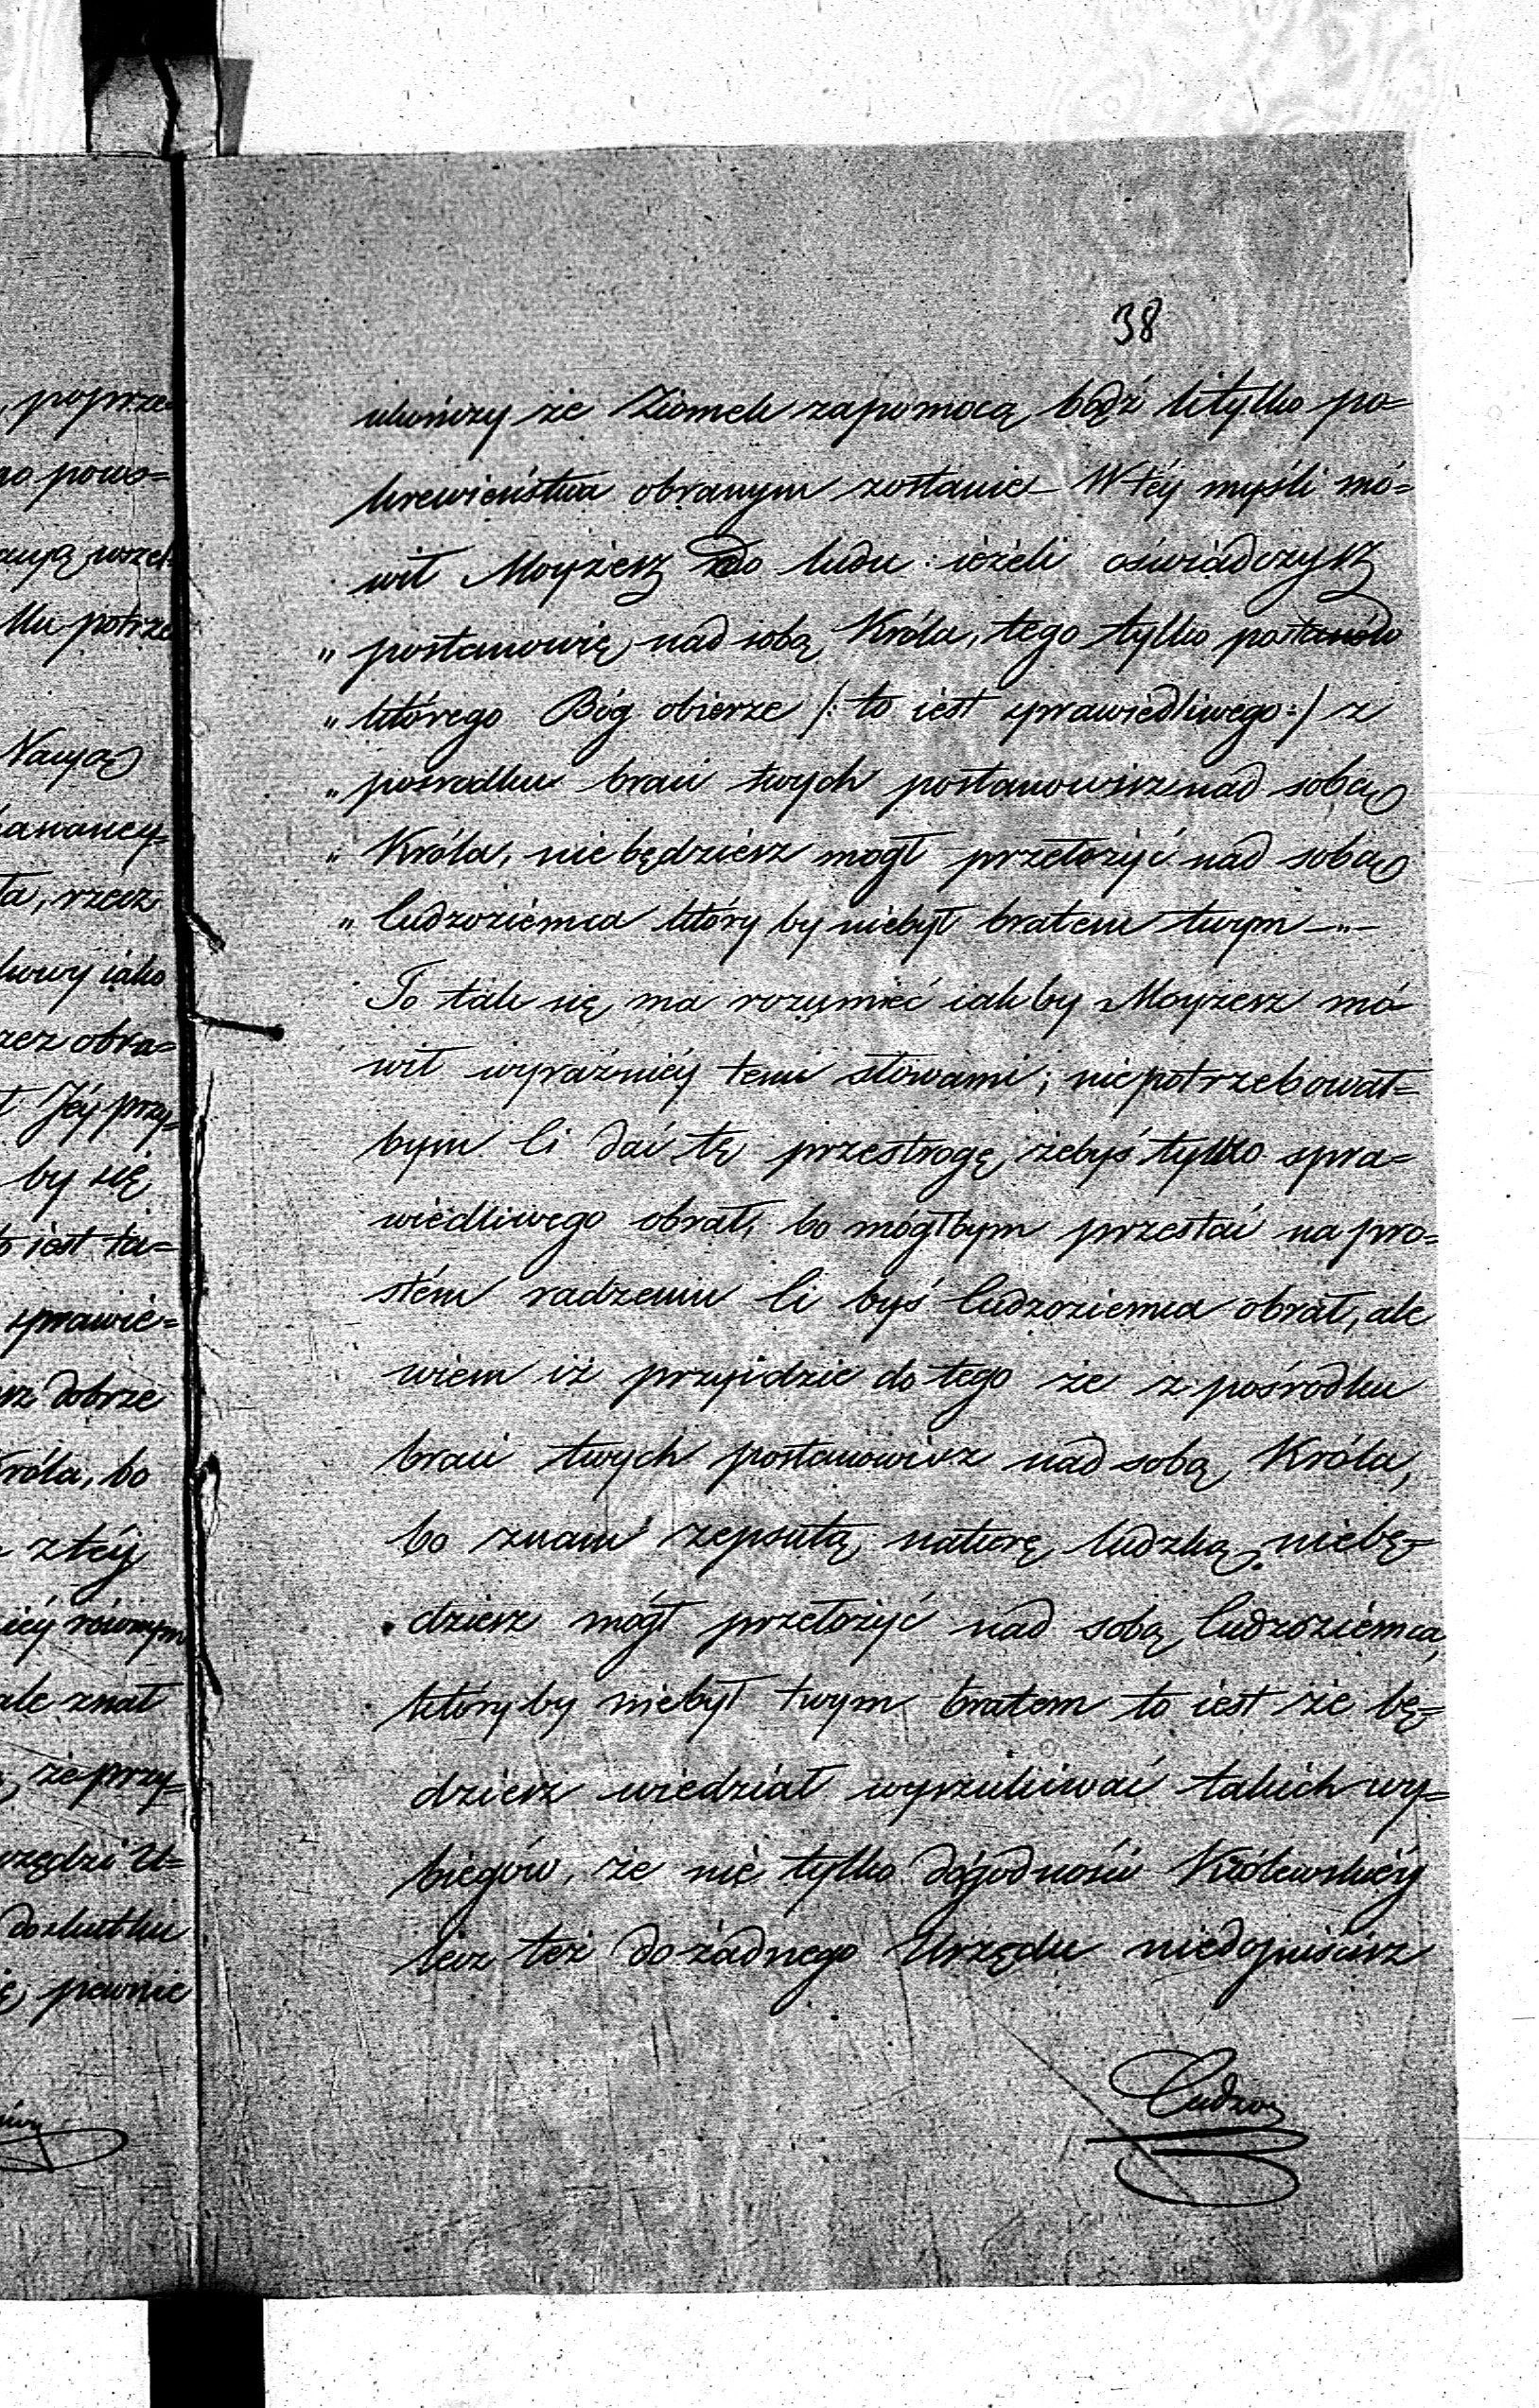 , poprze-
no powo=
ają wszel-
Mu potrze
Nacyą
ta, rzecz
kowy iako
rzez obra=
t Jéy przy-
by się
to iest ta=
sprawie=
dobrze
Króla, bo
z téy
iéy równym
ale znał
że przy=
Urzędzi u=
do skutku
pewnie
38
ukończy że Ziomek zapomocą bądź li tylko po=
krewieństwa obranym zostanie – W téy myśli mó=
wił Moyżesz do ludu: ieżeli oświadczysz
„ postanowię nad sobą Króla, tego tylko postanów
„ którego Bóg obierze /: to iest sprawiedliwego :/ z
„ posrodku braci twych postanowisz nad sobą
„ Króla, nie będziesz mogł przełożyć nad sobą
„ Cudzoziemca który by niebył bratem twym –„–
To tak się ma rozumieć iak by Moyżesz mó=
wił wyraźniéy temi słowami; nie potrzebował=
bym Ci dać tę przestrogę, żebyś tylko spra=
wiedliwego obrał, bo mógłbym przestać na pro=
stém radzeniu Ci byś Cudzoziemca obrał, ale
wiem iż przyidzie do tego że z pośrodku
braci twych postanowisz nad sobą Króla,
bo znam zepsutą naturę ludzką, niebę=
dziesz mógł przełożyć nad sobą Cudzoziémca,
który by niebył twym bratem to iest że bę=
dziesz wiedział wyszukiwać takich wy=
biegów, że nie tylko do godności Królewskiéy
lecz też do żadnego Urzędu niedopuścisz
Cudzo